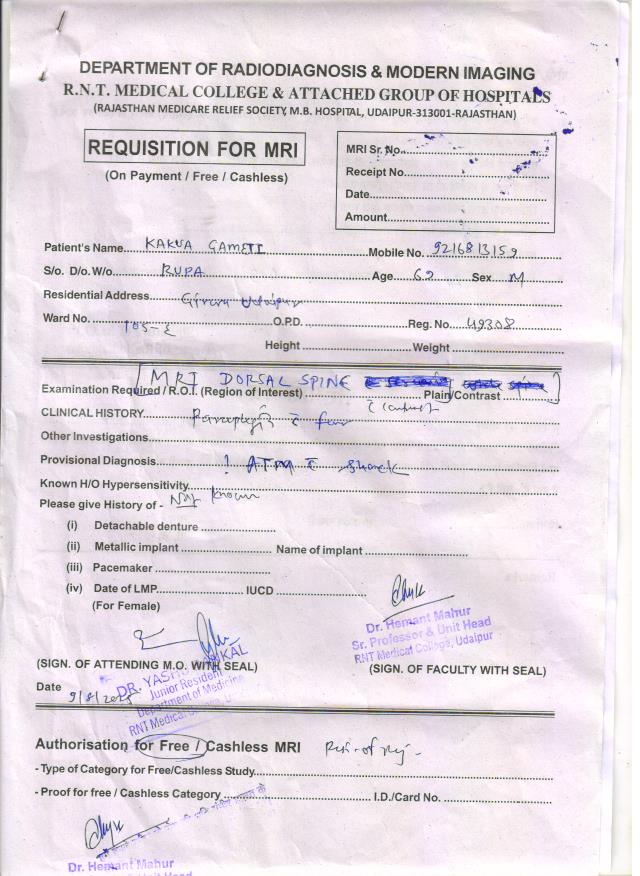 DEPARTMENT OF RADIODIAGNOSIS & MODERN IMAGING
R.N.T. MEDICAL COLLEGE & ATTACHED GROUP OF HOSPITALS
(RAJASTHAN MEDICARE RELIEF SOCIETY, M.B. HOSPITAL, UDAIPUR-313001-RAJASTHAN)
REQUISITION FOR MRI
(On Payment / Free / Cashless)
MRI Sr. No.
Receipt No.
Date
Amount
Patient's Name KAKUA GAMETI Mobile No. 9216813159
S/o. D/o. W/o RUPA Age 62 Sex M
Residential Address Girwa Udaipur
Ward No. 105-E O.P.D. Reg. No. 49308
Height Weight
MRI DORSAL SPINE
Examination Required / R.O.I. (Region of Interest) Plain/Contrast
CLINICAL HISTORY Paraplegia c fever
Other Investigations
Provisional Diagnosis ? ATM c shock
Known H/O Hypersensitivity
Please give History of - Not known
(i) Detachable denture
(ii) Metallic implant Name of implant
(iii) Pacemaker
(iv) Date of LMP IUCD
(For Female)
Dr. Hemant Mahur
Sr. Professor & Unit Head
RNT Medical College, Udaipur
(SIGN. OF ATTENDING M.O. WITH SEAL) (SIGN. OF FACULTY WITH SEAL)
Junior Resident
Department of Medicine
RNT Medical
Date 9/8/
Authorisation for Free / Cashless MRI
- Type of Category for Free/Cashless Study
- Proof for free / Cashless Category I.D./Card No.
Dr. Hemant Mahur